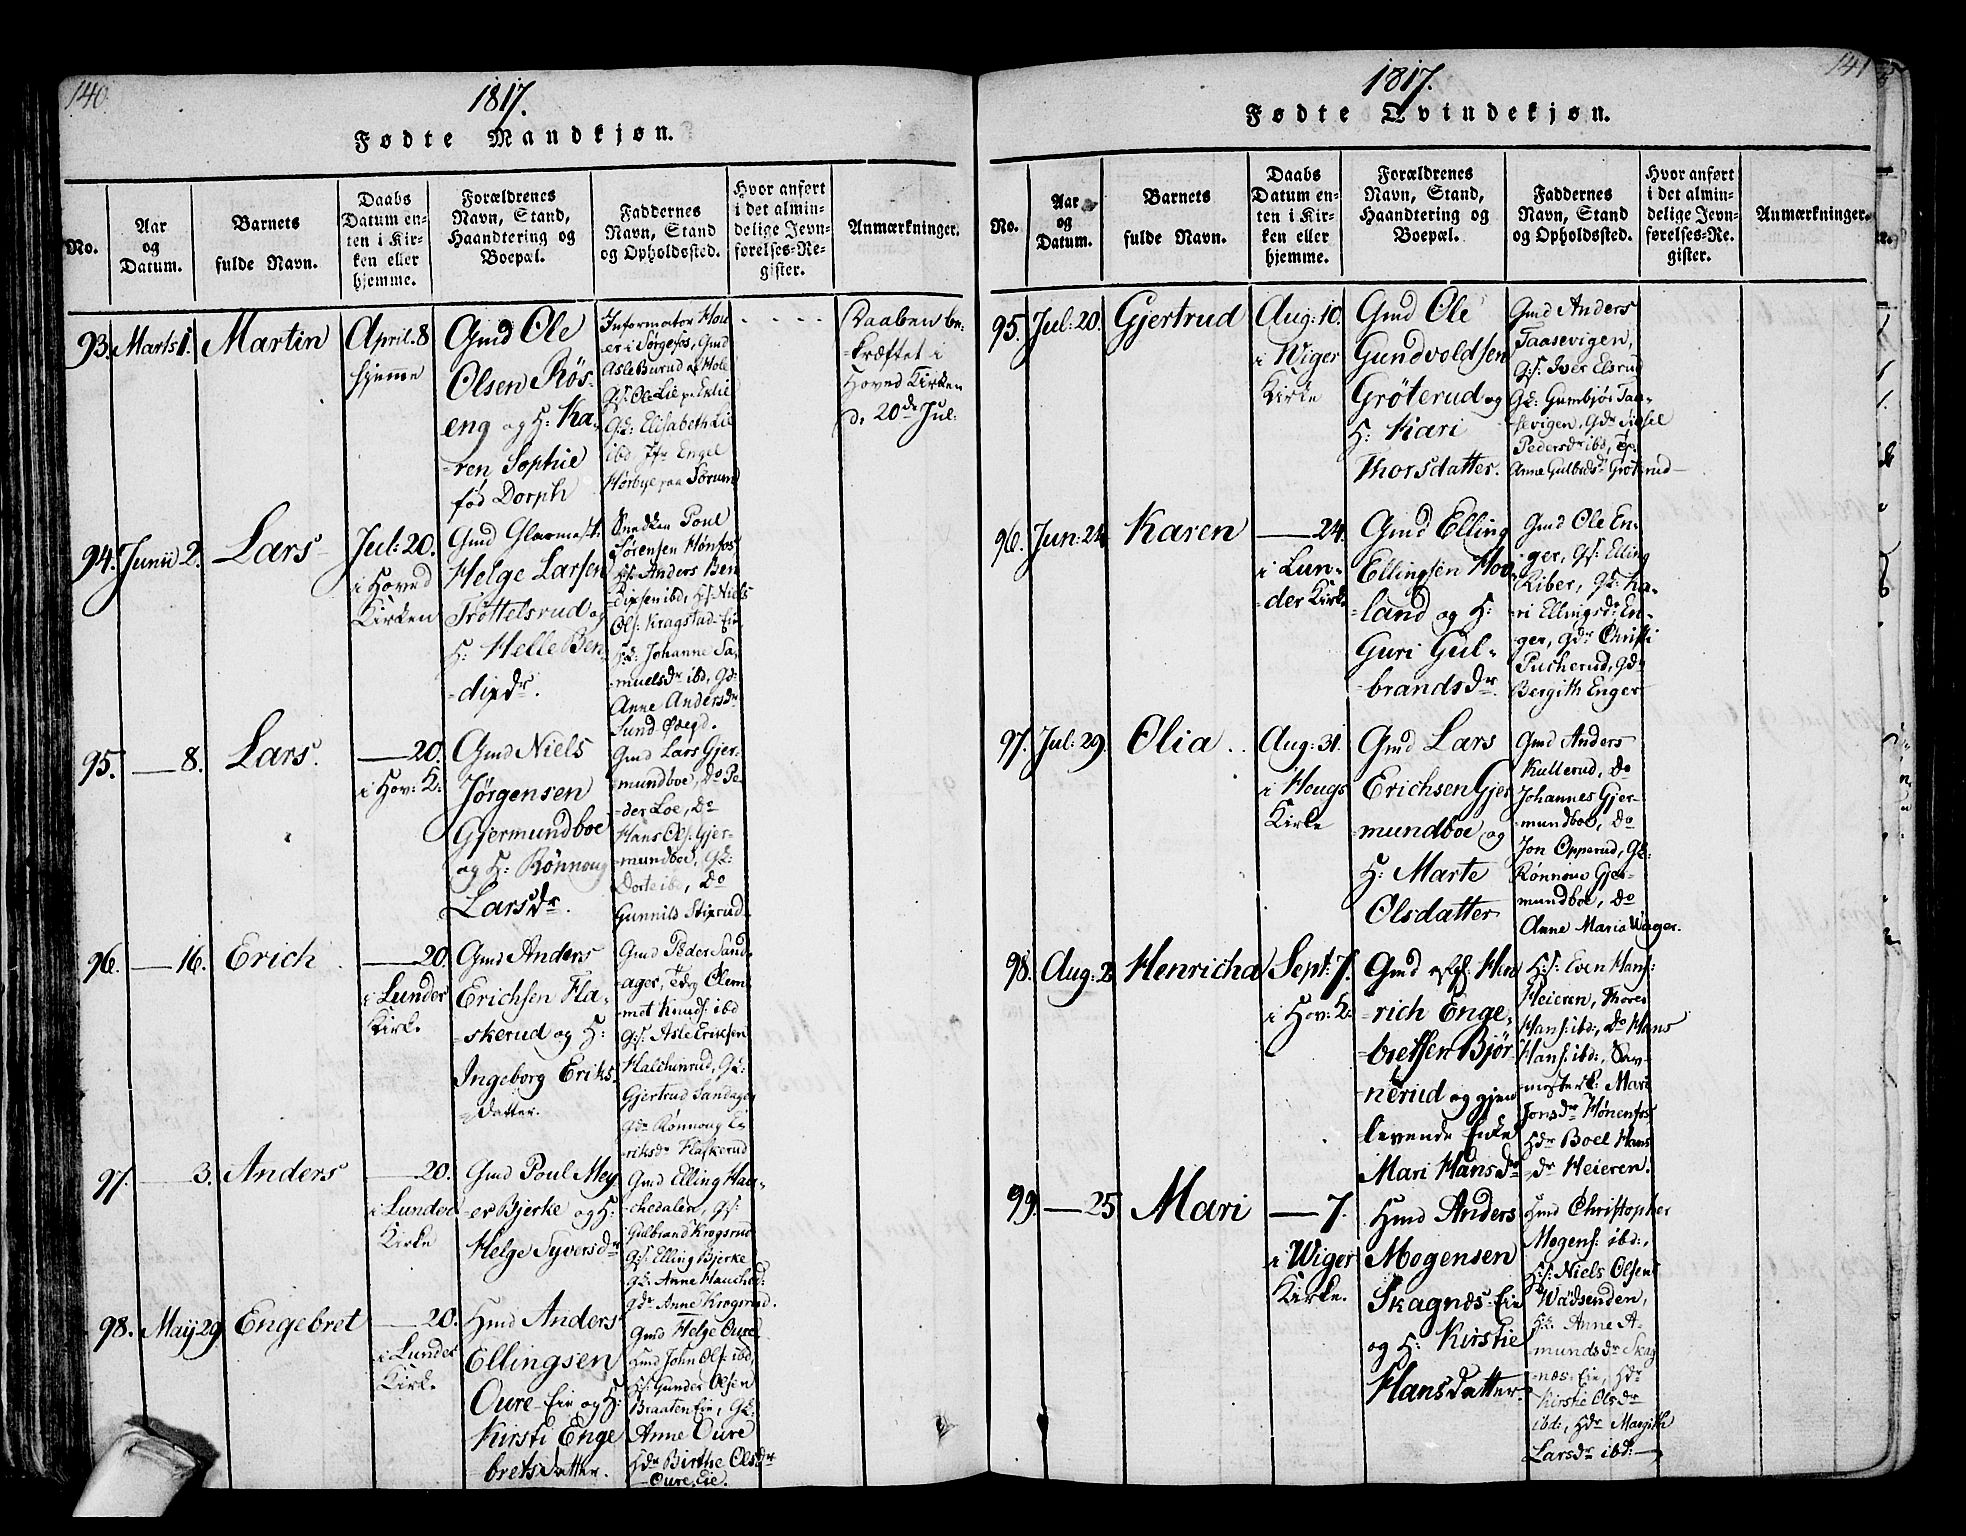 140
1817.
Fødte Mandkjøn.
No.
Aar
og
Datum.
Barnets
fulde Navn.
Daabs
Datum en-
ten i Kir-
ken eller
hjemme.
Forældrenes
Navn, Stand,
Haandtering og
Boepæl.
Faddernes
Navn, Stand
og Opholdssted.
Hvor anført
i det almin-
delige Jevn-
førelses-Re-
gister.
Anmærkninger.
93. Marts 1. Martin
April. 8
hjemme
Gmd Ole
Olsen Røs-
eng og H: Ka-
-ren Sophie
fød Dorph
Informator Hou
er i Sørgefos, Gmd
Asle Burud af Hole
Gs: Ole Lie
Gk: Elisabeth Lie
ibd Jfr Engel
Hørbye paa Sørum
Daaben be-
-kræftet i
Hoved Kirken
d. 20de Jul:
94. Junii 2. Lars
Jul: 20.
i Hoved
Kirken
Gmd Glarmest:
Helge Larsen
Trøttelsrud og
H: Helle Ben
-dixdr.
Snedker Poul
Sørensen Hønfos
Hs: Anders Ben
-dixsen ibd, Hs: Niels
Ols: Kragstad-Eie
Hk: Johanne Sa-
-muelsdr ibd, Gd:
Anne Andersdr
Sund Øregd.
95. — 8. Lars.
— 20.
i Hov: K:
Gmd Niels
Jørgensen
Gjermundboe
og H: Rønnoug
Larsdr.
Gmd Lars Gjer-
mundboe, Do Pe-
-der Loe, Do
Hans Ols: Gjer-
-mundboe, Gk:
Dorte ibd, Do
Gunnild Stixrud
96. — 16. Erich
— 20.
i Lunder
Kirke
Gmd Anders
Erichsen Fla-
-skerud og H:
Ingeborg Eriks-
-datter.
Gmd Peder Sand-
-ager, Clem-
-met Knuds: ibd
Gs: Asle Eriksen
Halchinrud, Gk:
Gjertrud Sandager
Gdr Rønnoug E-
-riksdr Flaskerud
97. — 3. Anders
— 20.
i Lunder
Kirke
Gmd Poul Mey
-er Bjerke og H:
Helge Syversdr
Gmd Elling Hau-
-chedalen, Gs:
Gulbrand Krogsrud
Gs: Elling Bjerke
Gk: Anne Hauched:
Gdr Anne Krogsrud.
98. Maij 29 Engebret
— 20.
i Lunder
Kirke
Hmd Anders
Ellingsen
Oure-Eie og H:
Kirsti Enge
-bretsdatter.
Gmd Helge Oure
Hmd John Ols: ibd,
Hs: Gunder Olsen
Braaten Eie, Gk:
Anne Oure
Hdr Birthe Olsdr
— Oure, Eie.
141
1817.
Fødte Qvindekjøn.
No.
Aar
og
Datum.
Barnets
fulde Navn.
Daabs
Datum en-
ten i Kir-
ken eller
hjemme.
Forældrenes
Navn, Stand,
Haandtering og
Boepæl.
Faddernes
Navn, Stand
og Opholdssted.
Hvor anført
i det almin-
delige Jevn-
førelses-Re-
gister.
Anmærkninger.
95. Jul: 20. Gjertrud
Aug: 10.
i Wiger
Kirke
Gmd Ole
Gundvoldsen
Grøterud og
H: Kari
Thorsdatter.
Gmd Anders
Taasevigen,
Gs: Iver Elsrud
Gk: Gumbjør Taa-
sevigen, Gdr Sidsel
Pedersdr ibd,
Anne Gulbrdsdr Grøterud —
96. Jun: 24. Karen
— 24.
i Lun-
-der Kirke
Gmd Elling
Ellingsen Hov
-land og H:
Guri Gul-
-brandsdr.
Gmd Ole En-
-ger, Gs: Elling
Riber, Gk: Ka-
-ri Ellingsdr En-
-ger, Gdr Christi
Pucherud, Gdr
Bergith Enger
97. Jul: 29. Olia
Aug: 31.
i Hougs
Kirke
Gmd Lars
Erichsen Gjer
-mundboe og
H: Marte
Olsdatter
Gmd Anders
Kullerud, Do
Johannes Gjer-
mundboe, Do
Jon Opperud, Gk:
Rønnoug Gjer-
mundboe, Do
Anne Maria Wager.
98. Aug: 2. Henricha
Sept: 7.
i Hov: K:
Gmd Hen
-rich Enge-
-bretsen Bjør-
-nerud og gjen
levende Enke
Mari Hansdr
Hs: Even Hans:
Heieren, Thores
Hans: ibd:, Do Hans
Hans: ibd:, Sav-
mesterk: Mari
Jonsdr Hønenfos,
Hdr Boel Hans
-dr Heieren.
99. — 25 Mari
— 7.
i Wiger
Kirke.
Hmd Anders
Mogensen
Skagnæs-Eie
og H: Kirstie
Hansdatter
Hmd Christopher
Mogens: ibd:,
Hs: Niels Olsen
Wadsenden,
Hk: Anne A-
mundsdr Skag
-næs-Eie, Hdr
Kirstie Olsdr
ibd:, Hdr Margith
Larsdr ibd: —